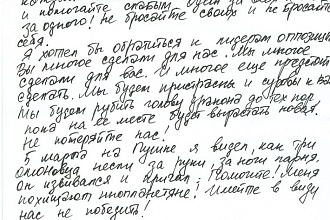 и помогайте слабым. Один за всех
за одного! Не бросайте своих и не бросайте
себя.
Я хотел бы обратиться к лидерам оппозиции
Вы многое сделали для нас. Мы многое
сделали для вас. И многое еще предстоит
сделать. Мы будем пристрастны и суровы к вам
Мы будем рубить голову дракона до тех пор
пока на ее месте будет вырастать новая.
Не потеряйте нас!
5 марта на Пушке я видел, как три
слоновца несли за руки, за ноги парня.
Он извивался и кричал: „Помогите! Меня
похищают инопланетяне! Имейте в виду
нас не победить!